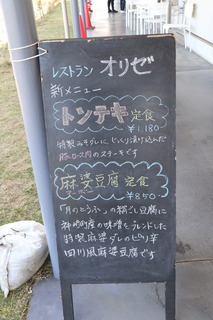 レストラン オリゼ
新メニュー
トンテキ定食
¥1,180
特製みそダレに じっくり漬け込んだ
豚ロース肉のステーキです
麻婆豆腐 定食
¥850
「月のとうふ」の絹ごし豆腐に
神崎町産の味噌をブレンドした
特製麻婆ダレのピリ辛
四川風麻婆豆腐です